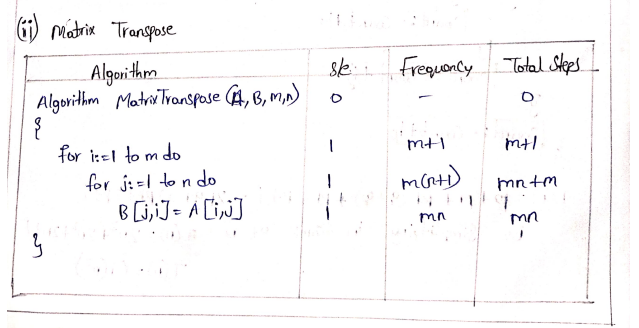 (ii) Matrix Transpose
Algorithm s/e Frequency Total Steps
Algorithm MatrixTranspose (A, B, m, n) 0 - 0
{
for i:=1 to m do 1 m+1 m+1
for j:=1 to n do 1 m(n+1) mn+m
B[j,i]= A[i,j] 1 mn mn
}